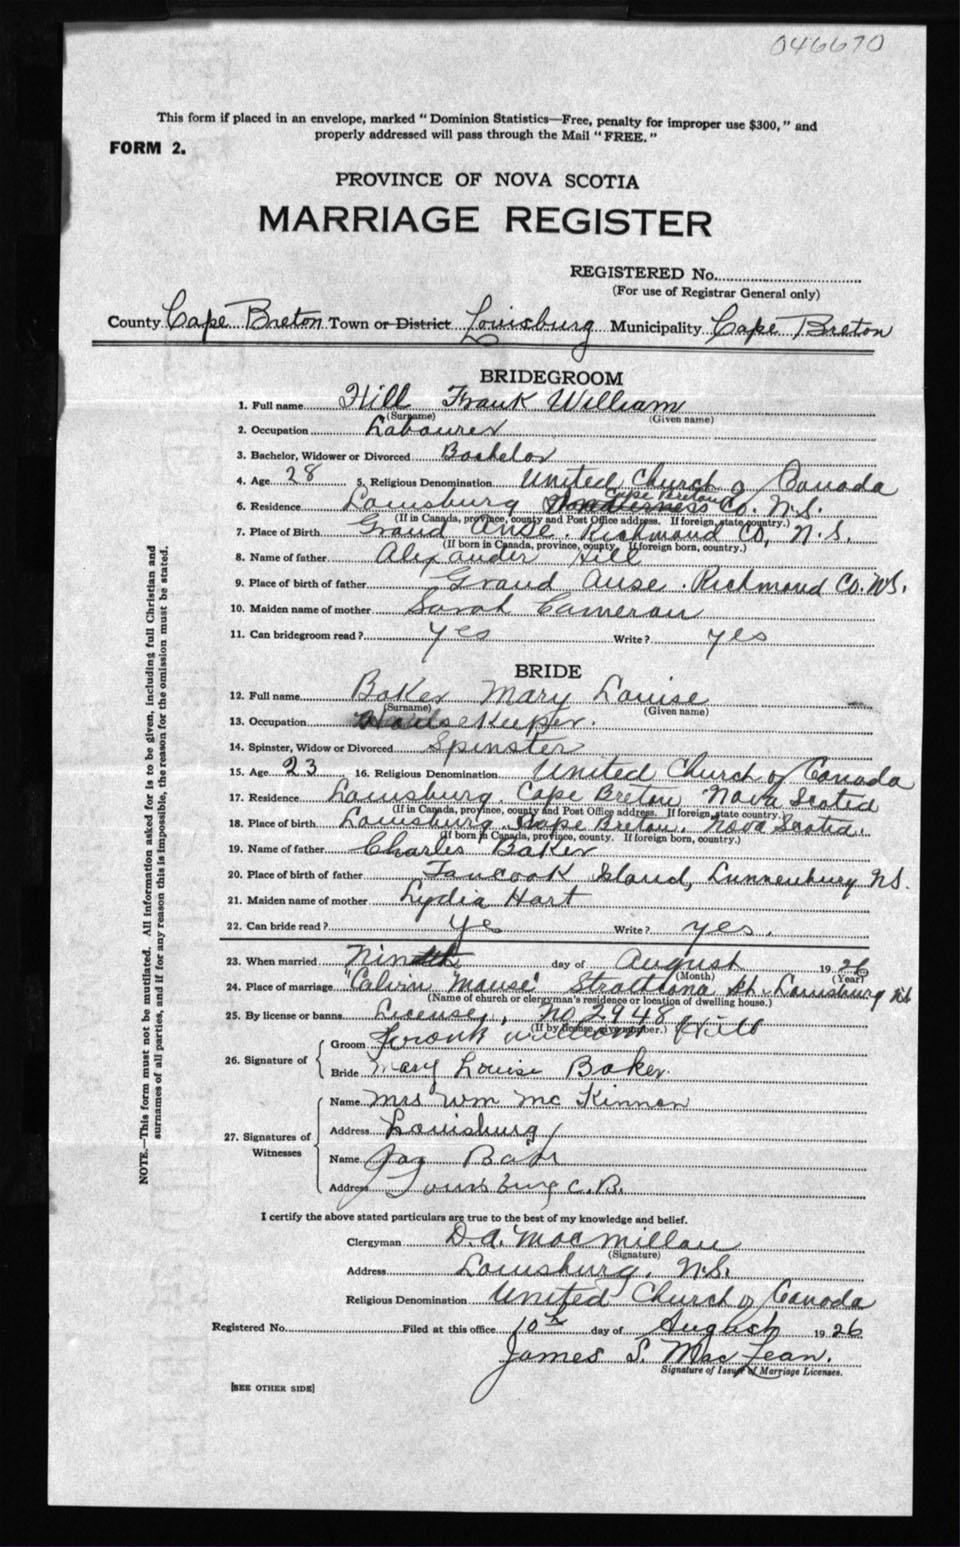 046670
This form if placed in an envelope, marked "Dominion Statistics—Free, penalty for improper use $300," and
properly addressed will pass through the Mail "FREE."
FORM 2.
PROVINCE OF NOVA SCOTIA
MARRIAGE REGISTER
REGISTERED No.
(For use of Registrar General only)
County Cape Breton Town or District Louisburg Municipality Cape Breton
BRIDEGROOM
1. Full name Hill Frank William
(Surname) (Given name)
2. Occupation Labourer
3. Bachelor, Widower or Divorced Bachelor
4. Age 28 5. Religious Denomination United Church of Canada
6. Residence Louisburg Cape Breton Co. N.S.
(If in Canada, province, county and Post Office address. If foreign, state country.)
7. Place of Birth Grand Anse. Richmond Co, N.S.
(If born in Canada, province, county. If foreign born, country.)
8. Name of father Alexander Hill
9. Place of birth of father Grand Anse. Richmond Co. N.S.
10. Maiden name of mother Sarah Cameron
11. Can bridegroom read? yes Write? yes
BRIDE
12. Full name Baker Mary Louise
(Surname) (Given name)
13. Occupation Housekeeper.
14. Spinster, Widow or Divorced Spinster
15. Age 23 16. Religious Denomination United Church of Canada
17. Residence Louisburg, Cape Breton Nova Scotia
(If in Canada, province, county and Post Office address. If foreign, state country.)
18. Place of birth Louisburg, Cape Breton, Nova Scotia.
(If born in Canada, province, county. If foreign born, country.)
19. Name of father Charles Baker
20. Place of birth of father Tancook Island, Lunnenburg N.S.
21. Maiden name of mother Lydia Hart
22. Can bride read? yes Write? yes.
23. When married Ninth day of August 1926
(Month) (Year)
24. Place of marriage "Calvin Manse" Strathcona St. Louisburg
(Name of church or clergyman's residence or location of dwelling house.)
25. By license or banns License, No 2948
(If by license, give number.)
26. Signature of Groom Frank William Hill
Bride Mary Louise Baker.
27. Signatures of Witnesses
Name Mrs Wm McKinnon
Address Louisburg
Name
Address Louisburg C.B.
I certify the above stated particulars are true to the best of my knowledge and belief.
Clergyman D.A. MacMillan
(Signature)
Address Louisburg, N.S.
Religious Denomination United Church of Canada
Registered No. Filed at this office 10th day of August 1926
James S. MacLean.
Signature of Issuer of Marriage Licenses.
[SEE OTHER SIDE]
NOTE.—This form must not be mutilated. All information asked for is to be given, including full Christian and
surnames of all parties, and if for any reason this is impossible, the reason for the omission must be stated.